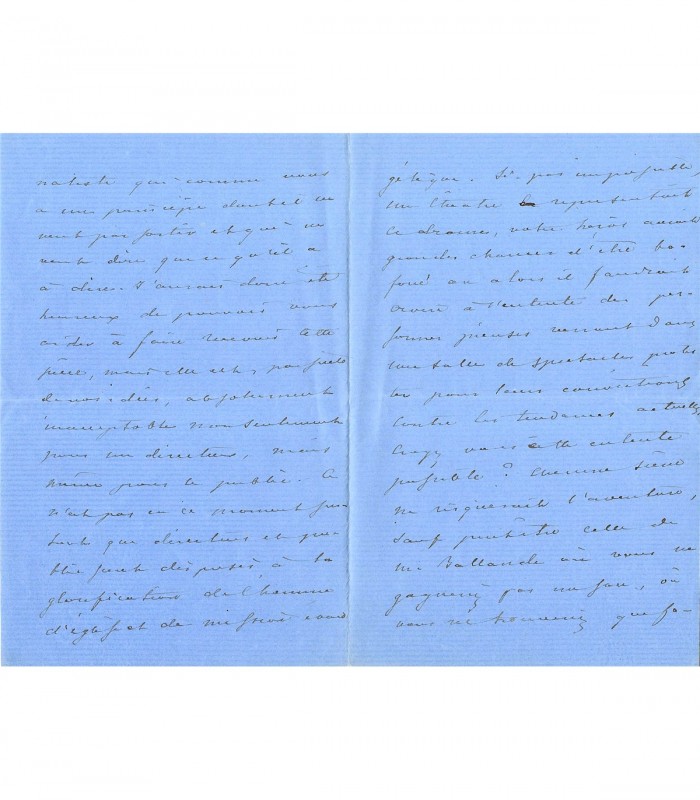 naliste qui comme vous
a une principe dont il ne
veut pas sortir et qui ne
veut dire que ce qu'il a
à dire. J'aurais donc été
heureux de pouvoir vous
aider à faire recevoir cette
pièce, mais elle est, par suite
de nos idées, absolument
inacceptable non seulement
pour un directeur, mais
même pour le public. Ce
n'est pas en ce moment
que directeurs et pu-
blic sont disposés à la
glorification de l'homme
d'église et de missions évan
gélique. Si, par impossible,
un théatre représentait
ce drame, votre héros aurait
grandes chances d'être ba-
foué ou alors il faudrait
croire à l'entente des per-
sonnes pieuses venant dans
une salle de spectacles protes
ter pour leurs convictions
contre les tendances actuelles
Croyez vous cette entente
possible? Aucune scène
ne risquerait l'aventure
sauf peutêtre celle de
M. Ballande où vous ne
gagneriez pas un sou, où
vous ne trouveriez que